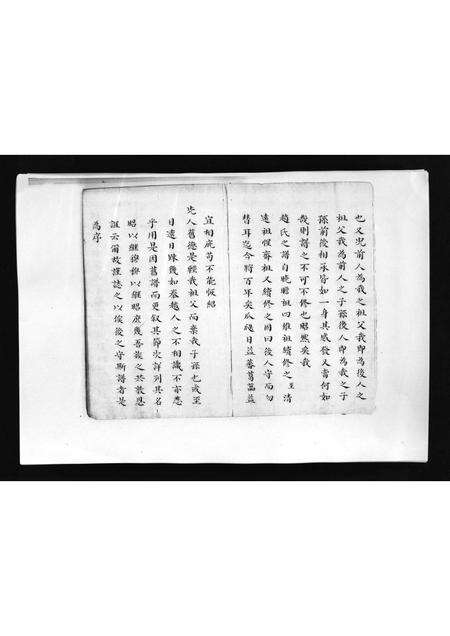 也又況前人為我之祖父我即為後人之
祖父我為前人之子孫後人即為我之子
孫前後相承皆如一身其感發又當何如
哉則譜之不可不修也昭然矣我
趙氏之譜自晚瞻祖曰維祖續修之至清
遠祖惺齋祖又續修之囬曰後人守而勿
替耳迄今將百年矣瓜瓞日益蕃葛藟益
宜相庇苟不能恢紹
先人舊德是賴我祖父而棄我子孫也或至
日遠日踈幾如秦越人之不相識不亦悉
乎用是因舊譜而更叙其節次詳列其名
昭以繼穆穆以繼昭庶幾吾族之於敦恩
誼云爾故謹誌之以俟後之守斯譜者是
為序